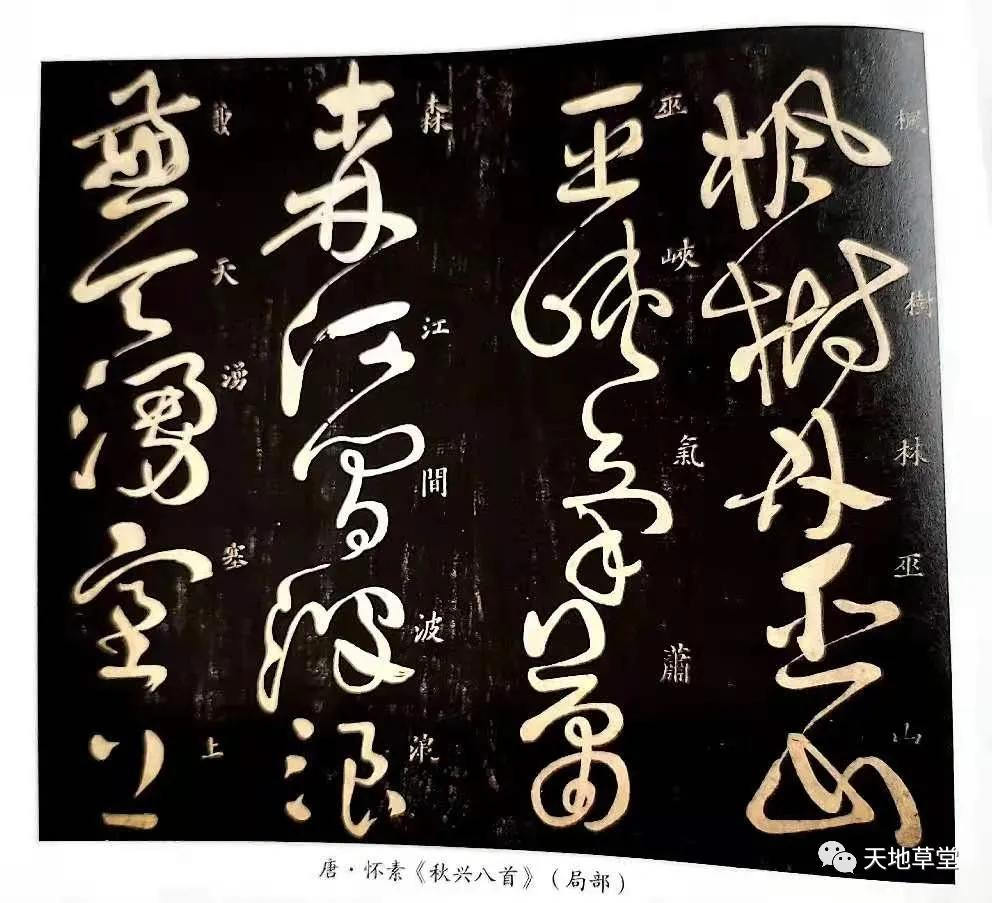 楓樹林巫山
楓樹林巫山
巫峽氣蕭
巫峽氣蕭
森江間波浪
森江間波浪
天湧塞上
兼天湧塞上
唐·怀素《秋兴八首》(局部)
天地草堂